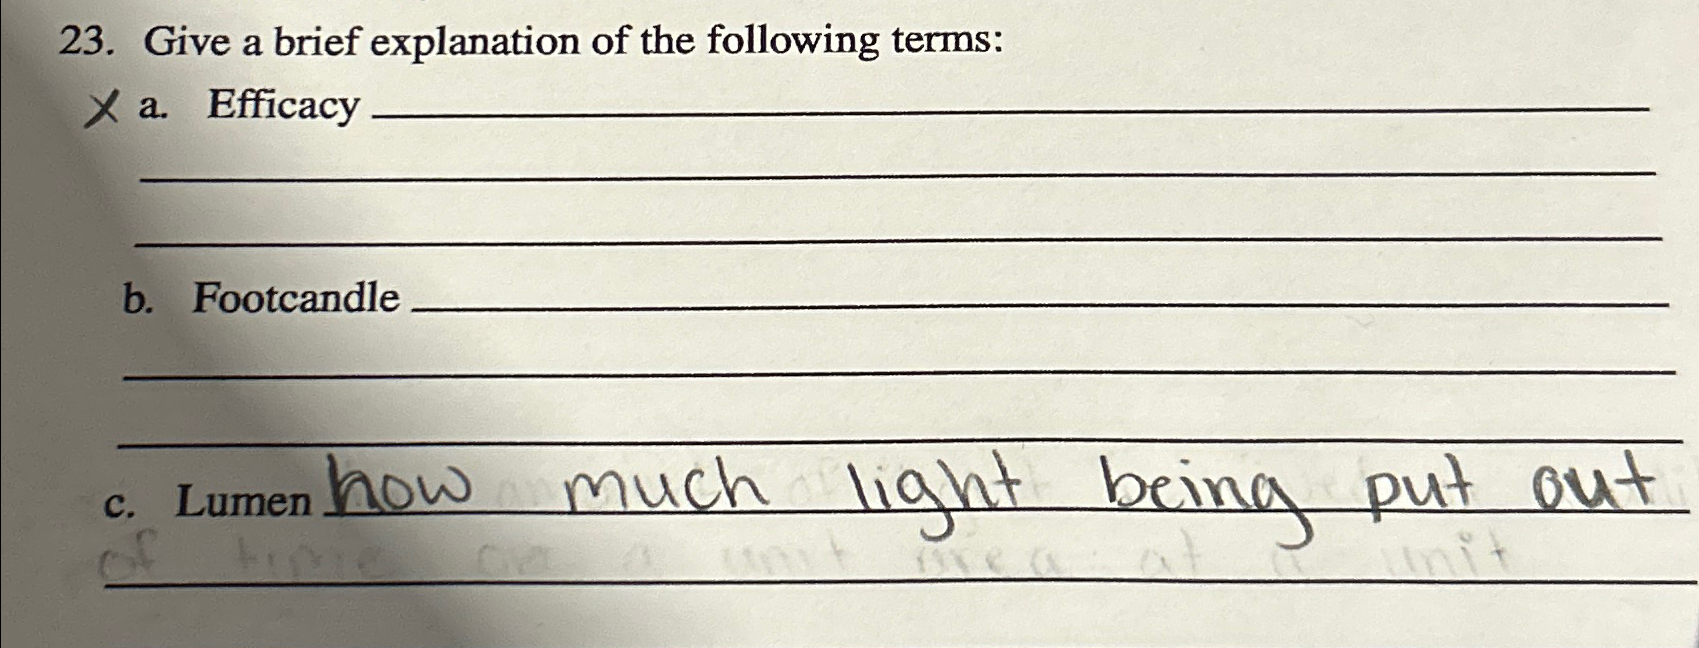 23. Give a brief explanation of the following terms:
X a. Efficacy
b. Footcandle
c. Lumen how much light being put out
of time on a unit area at a unit